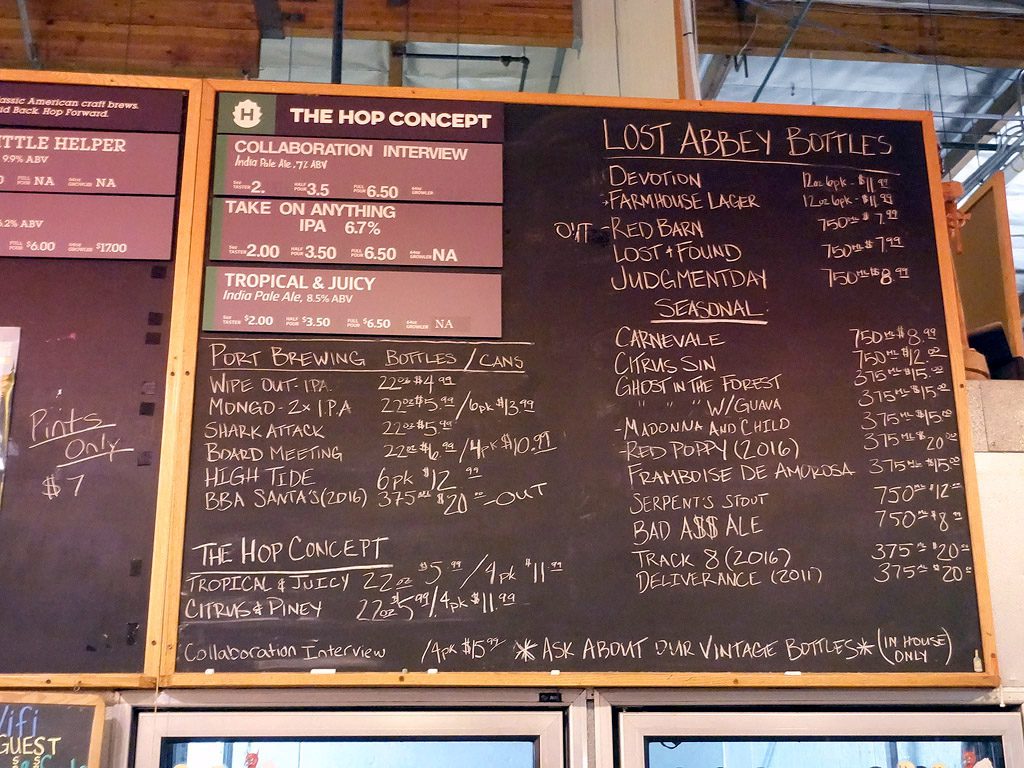 assic American craft brews.
id Back. Hop Forward.
ITTLE HELPER
9.9% ABV
FULL POUR NA 64oz GROWLER NA
.2% ABV
FULL POUR $6.00 64oz GROWLER $17.00
Pints
Only
$7
Wifi
GUEST
H THE HOP CONCEPT
COLLABORATION INTERVIEW
India Pale Ale .7% ABV
5oz TASTER 2. HALF POUR 3.5 FULL POUR 6.50 64oz GROWLER
TAKE ON ANYTHING
IPA 6.7%
5oz TASTER 2.00 HALF POUR 3.50 FULL POUR 6.50 64oz GROWLER NA
TROPICAL & JUICY
India Pale Ale, 8.5% ABV
5oz TASTER $2.00 HALF POUR $3.50 FULL POUR $6.50 64oz GROWLER NA
PORT BREWING BOTTLES / CANS
WIPE OUT IPA 22oz $4.99
MONGO - 2x I.P.A 22oz $5.99 / 6pk $13.99
SHARK ATTACK 22oz $5.99
BOARD MEETING 22oz $6.99 / 4pk $10.99
HIGH TIDE 6pk $12.99
BBA SANTA'S (2016) 375ML $20.00 - OUT
THE HOP CONCEPT
TROPICAL & JUICY 22oz $5.99 / 4pk $11.99
CITRUS & PINEY 22oz $5.99 / 4pk $11.99
Collaboration Interview /4pk $15.99
LOST ABBEY BOTTLES
DEVOTION 12oz 6pk - $11.99
FARMHOUSE LAGER 12oz 6pk - $11.99
OUT - RED BARN 750ML $7.99
LOST & FOUND 750ML $7.99
JUDGMENTDAY 750ML $8.99
SEASONAL
CARNEVALE 750ML $8.99
CITRUS SIN 750ML $12.00
GHOST IN THE FOREST 375ML $15.00
" " " W/GUAVA 375ML $15.00
- MADONNA AND CHILD 375ML $15.00
- RED POPPY (2016) 375ML $20.00
FRAMBOISE DE AMOROSA 375ML $15.00
SERPENT'S STOUT 750ML $12.00
BAD A$$ ALE 750ML $8.99
TRACK 8 (2016) 375ML $20.00
DELIVERANCE (2011) 375ML $20.00
* ASK ABOUT OUR VINTAGE BOTTLES * (IN HOUSE ONLY)